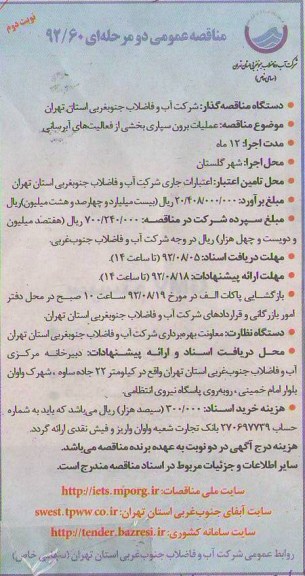 نوبت دوم
مناقصه عمومی دو مرحله‌ای ۹۲/۶۰
شرکت آب و فاضلاب جنوبغربی استان تهران
(سهامی خاص)
دستگاه مناقصه‌گذار: شرکت آب و فاضلاب جنوبغربی استان تهران
موضوع مناقصه: عملیات برون سپاری بخشی از فعالیت‌های آبرسانی
مدت اجرا: ۱۲ ماه
محل اجرا: شهر گلستان
محل تامین اعتبار: اعتبارات جاری شرکت آب و فاضلاب جنوبغربی استان تهران
مبلغ برآورد: ۲۰/۴۰۸/۰۰۰/۰۰۰ ریال (بیست میلیارد و چهارصد و هشت میلیون) ریال
مبلغ سپرده شرکت در مناقصه: ۷۰۰/۲۴۰/۰۰۰ ریال (هفتصد میلیون
و دویست و چهل هزار) ریال در وجه شرکت آب و فاضلاب جنوب‌غربی.
مهلت دریافت اسناد: ۹۲/۰۸/۰۵ (تا ساعت ۱۴).
مهلت ارائه پیشنهادات: ۹۲/۰۸/۱۸ (تا ساعت ۱۴).
بازگشایی پاکات الف در مورخ ۹۲/۰۸/۱۹ ساعت ۱۰ صبح در محل دفتر
امور بازرگانی و قراردادهای شرکت آب و فاضلاب جنوب‌غربی استان تهران.
دستگاه نظارت: معاونت بهره‌برداری شرکت آب و فاضلاب جنوبغربی استان تهران
محل دریافت اسناد و ارائه پیشنهادات: دبیرخانه مرکزی
آب و فاضلاب جنوب‌غربی استان تهران واقع در کیلومتر ۲۲ جاده ساوه ، شهرک واوان
بلوار امام خمینی ، روبه‌روی پاسگاه نیروی انتظامی.
هزینه خرید اسناد: ۳۰۰/۰۰۰ (سیصد هزار) ریال می‌باشد که باید به شماره
حساب ۲۷۰۶۹۷۷۳۹ بانک تجارت شعبه واوان واریز و فیش نقدی ارائه گردد.
هزینه درج آگهی در دو نوبت به عهده برنده مناقصه می‌باشد.
سایر اطلاعات و جزئیات مربوط در اسناد مناقصه مندرج است.
سایت ملی مناقصات: http://iets.mporg.ir
سایت آبفای جنوب‌غربی استان تهران: swest.tpww.co.ir
سایت سامانه کشوری: http://tender.bazresi.ir
روابط عمومی شرکت آب و فاضلاب جنوب‌غربی استان تهران (سهامی خاص)